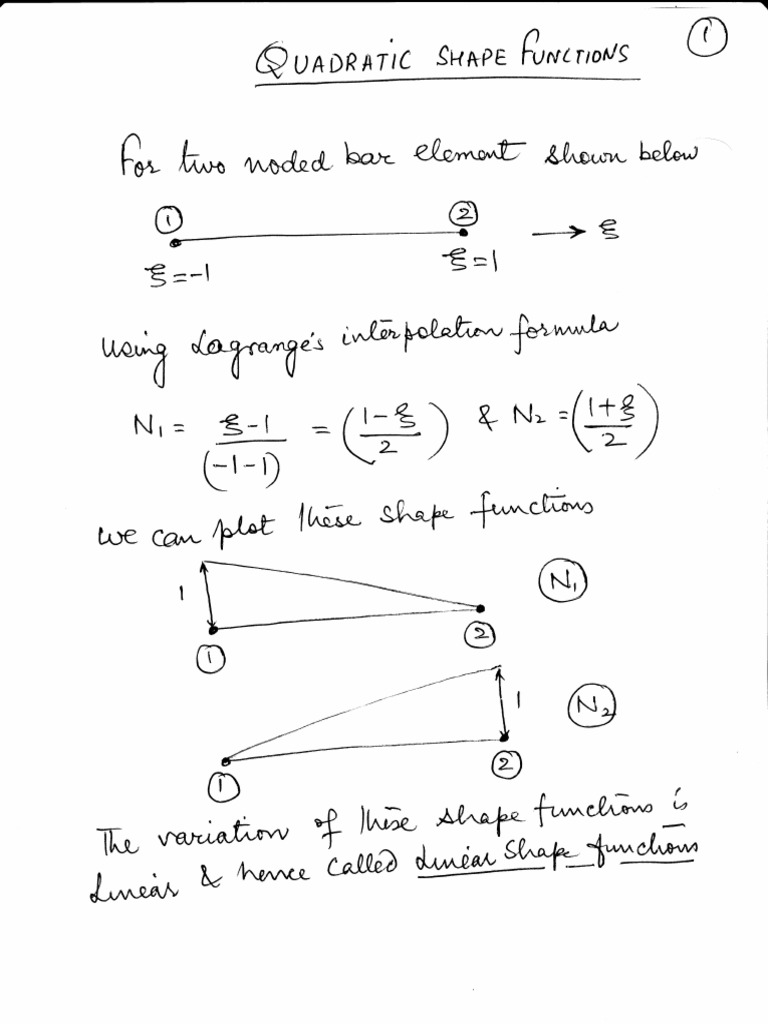 ①
QUADRATIC SHAPE FUNCTIONS
For two noded bar element shown below
① ② → ξ
ξ=-1 ξ=1
using Lagrange's interpolation formula
N₁ = ξ-1 / (-1-1) = (1-ξ / 2) & N₂ = (1+ξ / 2)
we can plot these shape functions
1 N₁
① ②
1 N₂
① ②
The variation of these shape functions is
linear & hence called Linear Shape functions